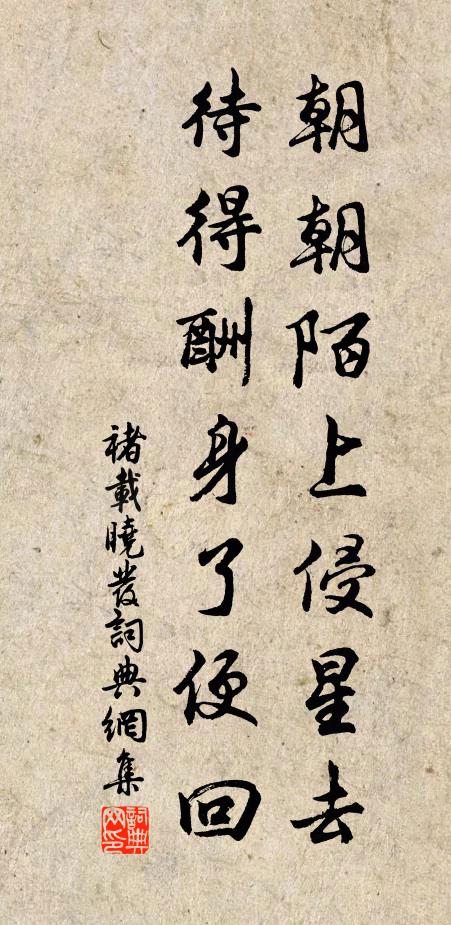 朝朝陌上侵星去
待得酬身了便回
褚載曉發詞典網集
詞典網印